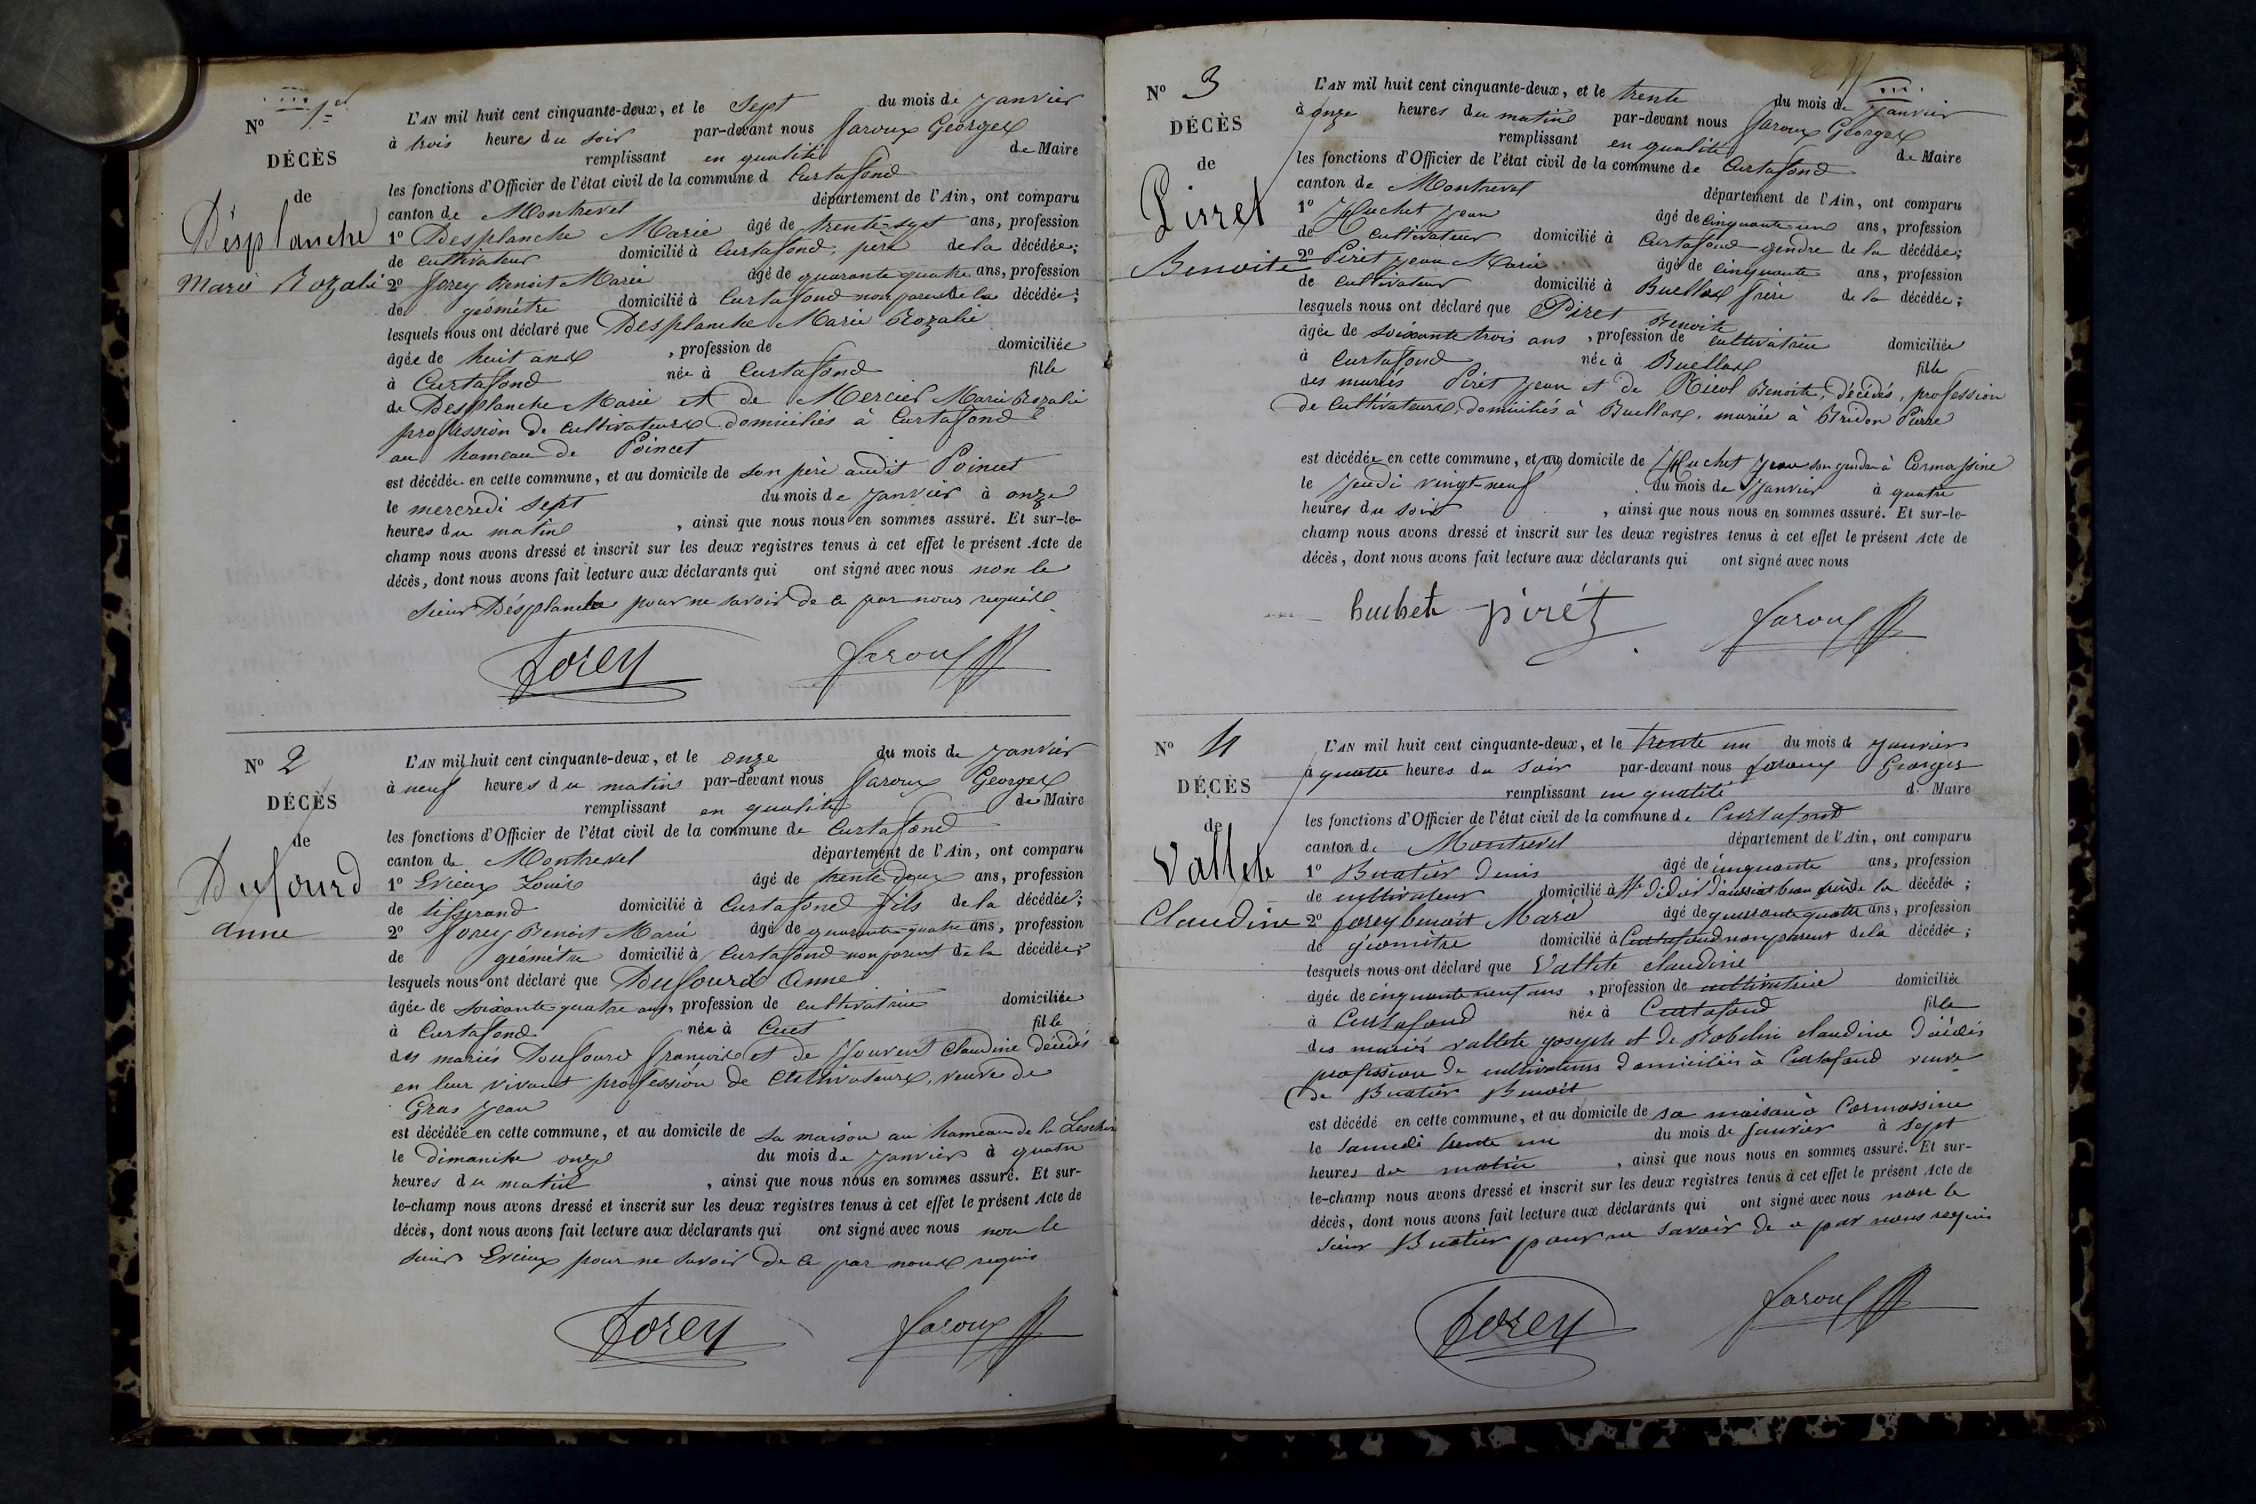 N° 1er
DÉCÈS
de
Désplanche
Marie Rozalie
L'AN mil huit cent cinquante-deux, et le sept du mois de janvier
à trois heures du soir par-devant nous Faroux Georges
remplissant en qualité de Maire
les fonctions d'Officier de l'état civil de la commune d Curtafond
canton de Montrevel département de l'Ain, ont comparu
1° Desplanche Marie âgé de trente-sept ans, profession
de cultivateur domicilié à Curtafond, père de la décédée;
2° forey Benoit Marie âgé de quarante quatre ans, profession
de géomètre domicilié à Curtafond non parent de la décédée;
lesquels nous ont déclaré que Desplanche Marie Rozalie
âgée de huit ans , profession de domiciliée
à Curtafond née à Curtafond fille
de Desplanche Marie et de Mercier Marie Rozalie
profession de cultivateurs domiciliés à Curtafond
au hameau de Poincet
est décédée en cette commune, et au domicile de son père audit Poincet
le mercredi sept du mois de janvier à onze
heures du matin , ainsi que nous nous en sommes assuré. Et sur-le-
champ nous avons dressé et inscrit sur les deux registres tenus à cet effet le présent Acte de
décès, dont nous avons fait lecture aux déclarants qui ont signé avec nous non le
sieur Désplanche pour ne savoir de ce par nous requis
forey Faroux
N° 2
DÉCÈS
de
Dufourd
Anne
L'AN mil huit cent cinquante-deux, et le onze du mois de janvier
à neuf heures du matin par-devant nous Faroux Georges
remplissant en qualité de Maire
les fonctions d'Officier de l'état civil de la commune de Curtafond
canton de Montrevel département de l'Ain, ont comparu
1° Evieux Louis âgé de trente deux ans, profession
de tisserand domicilié à Curtafond fils de la décédée;
2° forey Benoit Marie âgé de quarante-quatre ans, profession
de géomètre domicilié à Curtafond non parent de la décédée;
lesquels nous ont déclaré que Dufourd Anne
âgée de soixante quatre ans, profession de cultivatrice domiciliée
à Curtafond née à Cuet fille
des mariés Doufourd françois et de Jouvent Claudine décédés
en leur vivant profession de Cultivateurs, veuve de
Gras jean
est décédée en cette commune, et au domicile de sa maison au hameau de la
le dimanche onze du mois de janvier à quatre
heures du matin , ainsi que nous nous en sommes assuré. Et sur-
le-champ nous avons dressé et inscrit sur les deux registres tenus à cet effet le présent Acte de
décès, dont nous avons fait lecture aux déclarants qui ont signé avec nous non le
sieur Evieux pour ne savoir de ce par nous requis
forey faroux
N° 3
DÉCÈS
de
Pirret
Benoite
L'AN mil huit cent cinquante-deux, et le trente du mois de janvier
à onze heures du matin par-devant nous Faroux Georges
remplissant en qualité de Maire
les fonctions d'Officier de l'état civil de la commune de Curtafond
canton de Montrevel département de l'Ain, ont comparu
1° Huchet jean âgé de cinquante-un ans, profession
de cultivateur domicilié à Curtafond gendre de la décédée;
2° Piret jean Marie âgé de cinquante ans, profession
de cultivateur domicilié à Buellas frère de la décédée;
lesquels nous ont déclaré que Piret Benoite
âgée de soixante trois ans , profession de cultivatrice domiciliée
à Curtafond née à Buellas fille
des mariés Piret jean et de Benoite, décédés, profession
de Cultivateurs, domiciliés à Buellas, mariée à Bridon Pierre
est décédée en cette commune, et au domicile de Huchet jean son gendre à Cormassine
le jeudi vingt-neuf du mois de janvier à quatre
heures du soir , ainsi que nous nous en sommes assuré. Et sur-le-
champ nous avons dressé et inscrit sur les deux registres tenus à cet effet le présent Acte de
décès, dont nous avons fait lecture aux déclarants qui ont signé avec nous
huchet pirét faroux
N° 4
DÉCÈS
de
Vallete
Claudine
L'AN mil huit cent cinquante-deux, et le trente un du mois de janvier
à quatre heures du soir par-devant nous faroux Georges
remplissant en qualité d. Maire
les fonctions d'Officier de l'état civil de la commune de Curtafond
canton de Montrevel département de l'Ain, ont comparu
1° Buatier Denis âgé de cinquante ans, profession
de cultivateur domicilié à St Didier d'aussiat beau frère de la décédée;
2° forey benoit Marie âgé de quarante quatre ans, profession
de géomètre domicilié à Curtafond non parent de la décédée;
lesquels nous ont déclaré que Vallete claudine
âgée de cinquante neuf ans , profession de cultivatrice domiciliée
à Curtafond née à Curtafond fille
des mariés vallete joseph et de Robelin claudine décédés
profession de cultivateurs domiciliés à Curtafond veuve
de Buatier Benoit
est décédé en cette commune, et au domicile de sa maison à Cormassine
le samedi trente un du mois de janvier à sept
heures du matin , ainsi que nous nous en sommes assuré. Et sur-
le-champ nous avons dressé et inscrit sur les deux registres tenus à cet effet le présent Acte de
décès, dont nous avons fait lecture aux déclarants qui ont signé avec nous non le
sieur Buatier pour ne savoir de ce par nous requis
forey faroux